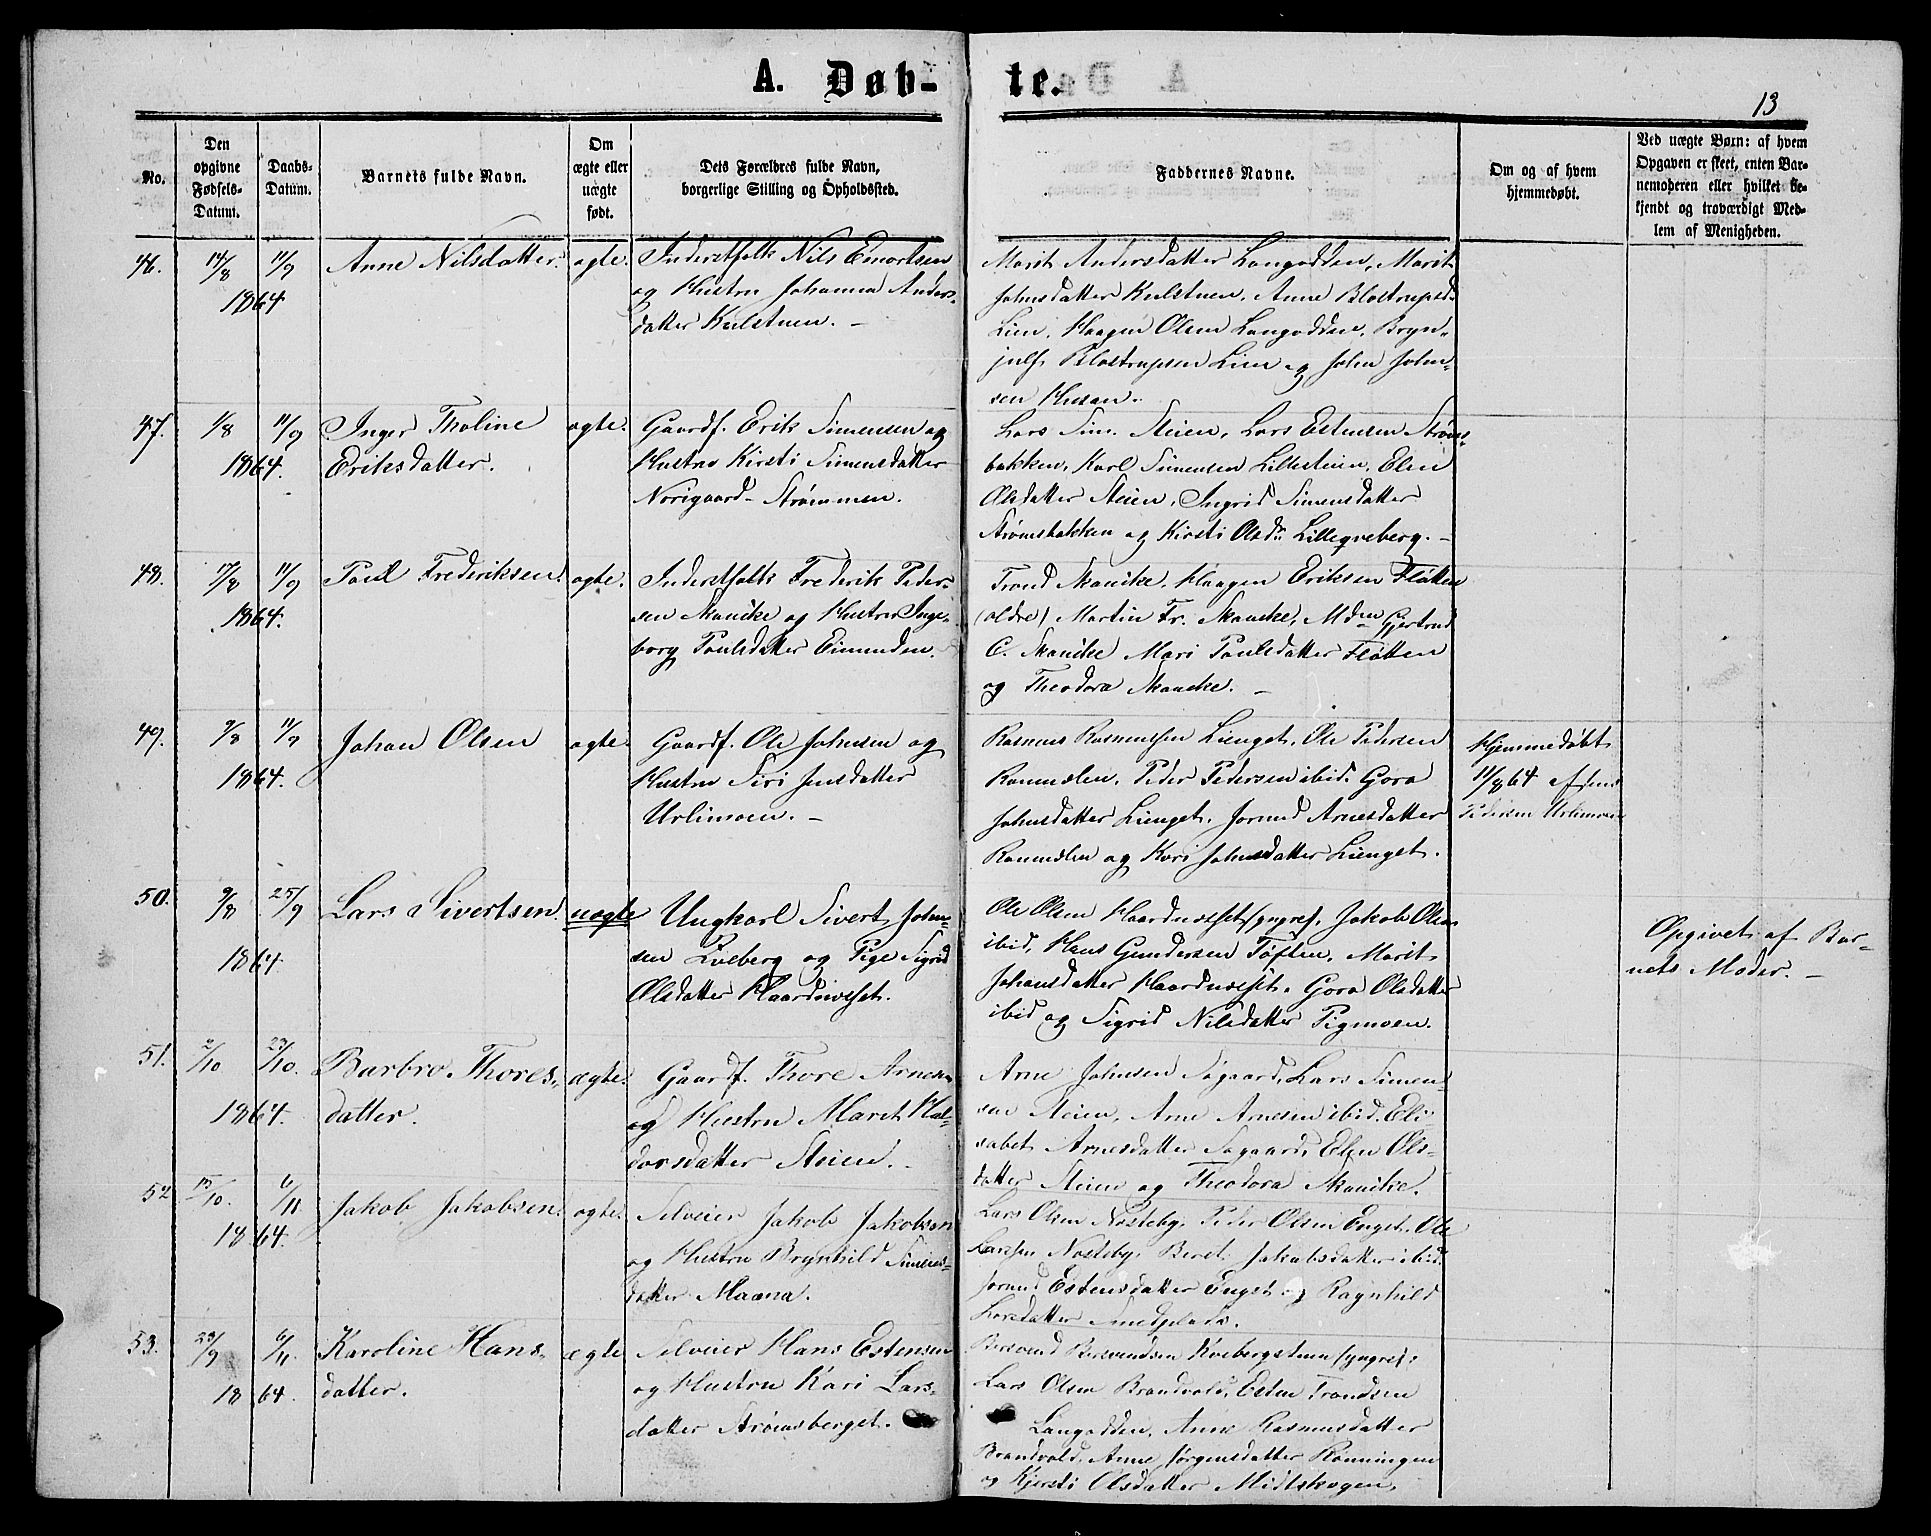 A. Døb-
te.
13
No.
Den
opgivne
Fødsels-
Datum.
Daabs-
Datum.
Barnets fulde Navn.
Om
ægte eller
uægte
født.
Dets Forældres fulde Navn,
borgerlige Stilling og Opholdssted.
Faddernes Navne.
Om og af hvem
hjemmedøbt.
Ved uægte Børn: af hvem
Opgaven er skeet, enten Bar-
nemoderen eller hvilket be-
kjendt og troværdigt Med-
lem af Menigheden.
46.
14/8
11/9
1864.
Anne Nilsdatter.
ægte.
Inderstfolk Nils
og Hustru Johanna Anders-
datter Kulstuen. –
Marit Andersdatter Langodden, Marit
Johnsdatter Kulstuen, Anne Blostrupsd.
Lien, Haagen Olsen Langodden, Bryn-
julf Blostrupsen Lien og John John-
sen Husan.
47.
1/8
11/9
1864.
Inger Tholine
Eriksdatter.
ægte.
Gaardf. Erik Simensen og
Hustru Kirsti Simensdatter
Norigaard-Strømmen.
Lars Sim. Steien, Lars Estensen Strøms-
bakken, Karl Simensen Lillesteien, Elen
Olsdatter Steien, Ingrid Simensdatter
Strømsbakken og Kirsti Olsdr. Lilleqveberg. –
48.
17/8
11/9
1864.
Paul Frederiksen.
ægte.
Inderstfolk Frederik Peder-
sen Skancke og Hustru Inge-
borg Paulsdatter Eimunden.
Trond Skancke, Haagen Eriksen Fløtten
(ældre) Martin Fr. Skancke, Mden Gjertrud
C. Skancke Mari Paulsdatter Fløtten
og Theodora Skancke. –
49.
9/8
11/9
1864.
Johan Olsen
ægte.
Gaardf. Ole Johnsen og
Hustru Siri Jensdatter
Urlimoen. –
Rasmus Rasmussen Lienget, Ole Pedersen
Ranmælen, Peder Pedersen ibid. Gora
Johnsdatter Lienget, Jorund Arnesdatter
Ranmælen og Kari Johnsdatter Lienget.
Hjemmedøbt
11/8 64 af Jens
Pedersen Urlimoen
50.
9/8
25/9
1864.
Lars Sivertsen.
uægte
Ungkarl Sivert John-
sen Qveberg og Pige Sigrid
Olsdatter Haardnesset.
Ole Olsen Haardnesset (yngre), Jakob Olsen
ibid, Hans Gundersen Tøften, Marit
Johansdatter Haardnesset, Gora Olsdatter
ibid og Sigrid Nilsdatter Pigmoen.
Opgivet af Bar-
nets Moder. –
51.
2/10
23/10.
1864.
Barbro Thores-
datter.
ægte.
Gaardf. Thore Arnesen
og Hustru Maret Hal-
dorsdatter Steien. –
Arne Johnsen Søgaard, Lars Simen-
sen Steien, Arne Arnesen ibid. Eli-
sabet Arnesdatter Søgaard, Elen Ols-
datter Steien og Theodora Skancke.
52
15/10.
6/11
1864.
Jakob Jakobsen.
ægte.
Selveier Jakob Jakobsen
og Hustru Brynhild Simens-
datter Maana.
Lars Olsen Nosteby, Peder Olsen Enget, Ole
Larssen Nosteby, Beret Jakobsdatter ibid.
Jorund Estensdatter Enget og Ragnhild
Larsdatter Smedplads.
53.
23/9
6/11
1864.
Karoline Hans-
datter.
ægte
Selveier Hans Estensen
og Hustru Kari Lars-
datter Strømsberget.
Bersvend Bersvendsen Kvebergstuen (yngre),
Lars Olsen Brandvold, Esten Trondsen
Langodden, Anne Rasmusdatter
Brandvold, Anne Jørgensdatter Rønningen
og Kjersti Olsdatter Midtskogen,